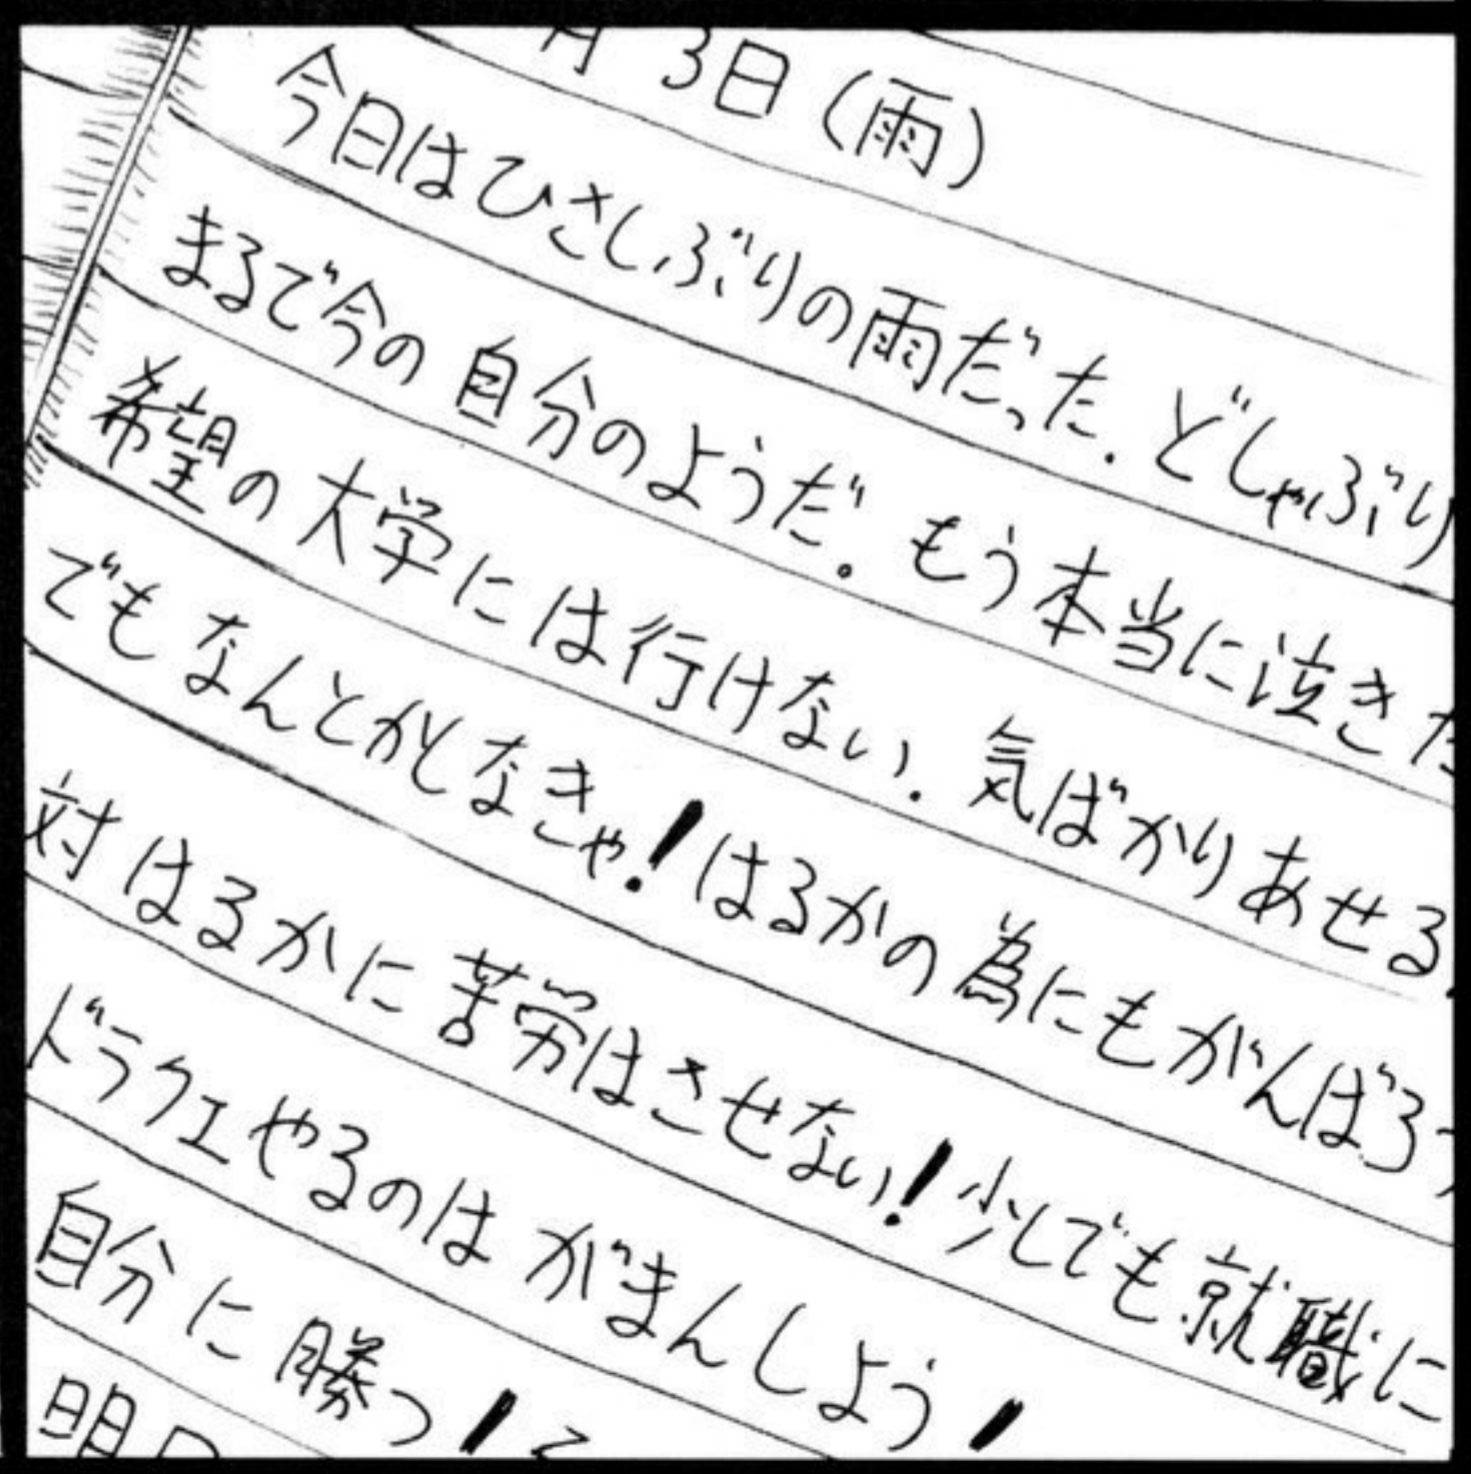 月3日(雨)
今日はひさしぶりの雨だった.どしゃぶり
まるで今の自分のようだ。もう本当に泣きた
希望の大学には行けない.気ばかりあせる
でもなんとかしなきゃ!はるかの為にもがんばろう
対はるかに苦労はさせない!少しでも就職に
ドラクエやるのはがまんしよう!
自分に勝つ!